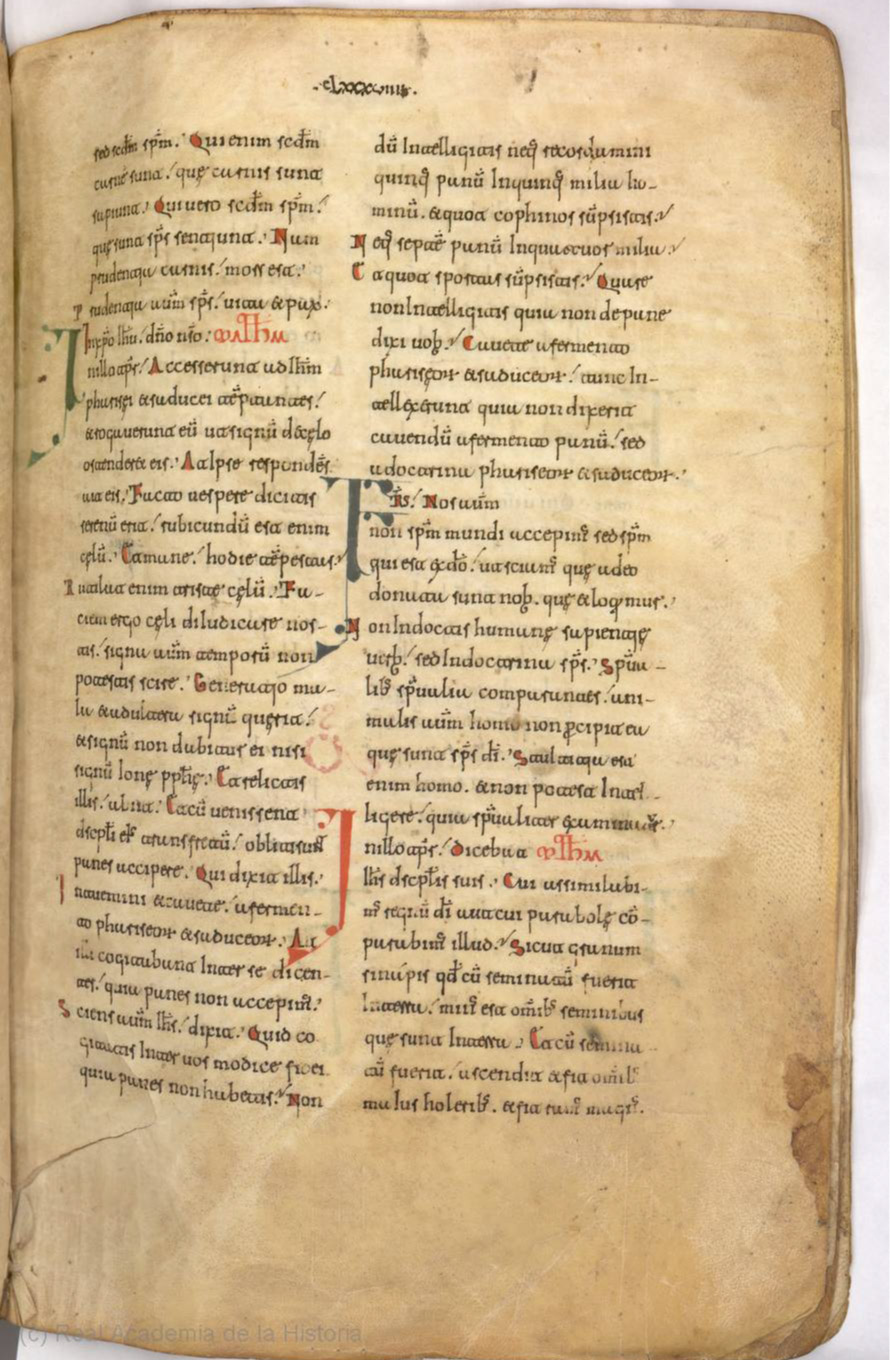 ·cLxxxviiii·
sed scdm spm. Qui enim scdm
carnē sunt. quę carnis sunt
sapiunt. Qui vero scdm spm.
quę sunt sps sentiunt. Nam
prudentia carnis. mors est.
prudentia aūm sps. vita & pax.
In xpo ihu. dno nso. MATHM
In illo tps. Accesserunt ad ihm
pharisęi & saducei tēptantes.
& rogaverunt eū ut signū d& cęlo
ostender& eis. At Ipse respondēs
ait eis. Facto vespere dicitis
serenū erit. rubicundū est enim
cęlū. Et mane. hodie tēpestas.
rutilat enim triste cęlū. Fa-
ciem ergo cęli diIudicare nos-
tis. signa aūm temporū non
potestis scire. Generatio ma-
la & adultera signū querit.
& signū non dabitur ei nisi
signū Ionę pphę. Et relictis
illis. abiit. Et cū venissent
dscpli eīs trans fretū. obliti sunt
panes accipere. Qui dixit illis.
Intuemini & cavete. a fermen-
to phariseor & saduceor. At
illi cogitabant Inter se dicen-
tes. quia panes non accepim.
Sciens aūm ihs. dixit. Quid co
gitatis Inter vos modice fidei
quia panes non habetis. Non
dū Intelligitis neq recordamini
quinq panū Inquinq milia ho-
minū. & quot cophinos sūpsistis.
Neq septē panū Inquattuor milia.
Et quot sportas sūpsistis. Quare
non Intelligitis quia non de pane
dixi vob. Cavete a fermento
phariseor & saduceor. tunc In-
tellexerunt quia non dixerit
cavendū a fermento panū. sed
a doctrina phariseor & saduceor.
Frs. Nos aūm
non spm mundi accepim sed spm
qui est ex dō. ut sciam quę a deo
donata sunt nob. quę & loqmur.
Non Indoctis humanę sapientię
verb. sed Indoctrina sps. Spūa-
lib spūalia comparantes. ani-
malis aūm homo non pcipit ea
quę sunt sps di. Stultitia est
enim homo. & non potest Intel-
ligere. quia spūaliter examinatr.
In illo tps. Dicebat MTHM
Ihs dscplis suis. Cui assimilabi-
m regnū di aut cui parabolę cō-
parabim illud. Sicut granum
sinapis qd cū seminatū fuerit
Interra. min est omīb seminibus
quę sunt Interra. Et cū semina
tū fuerit. ascendit & fit omīb
maius holerib. & fit ram magn.